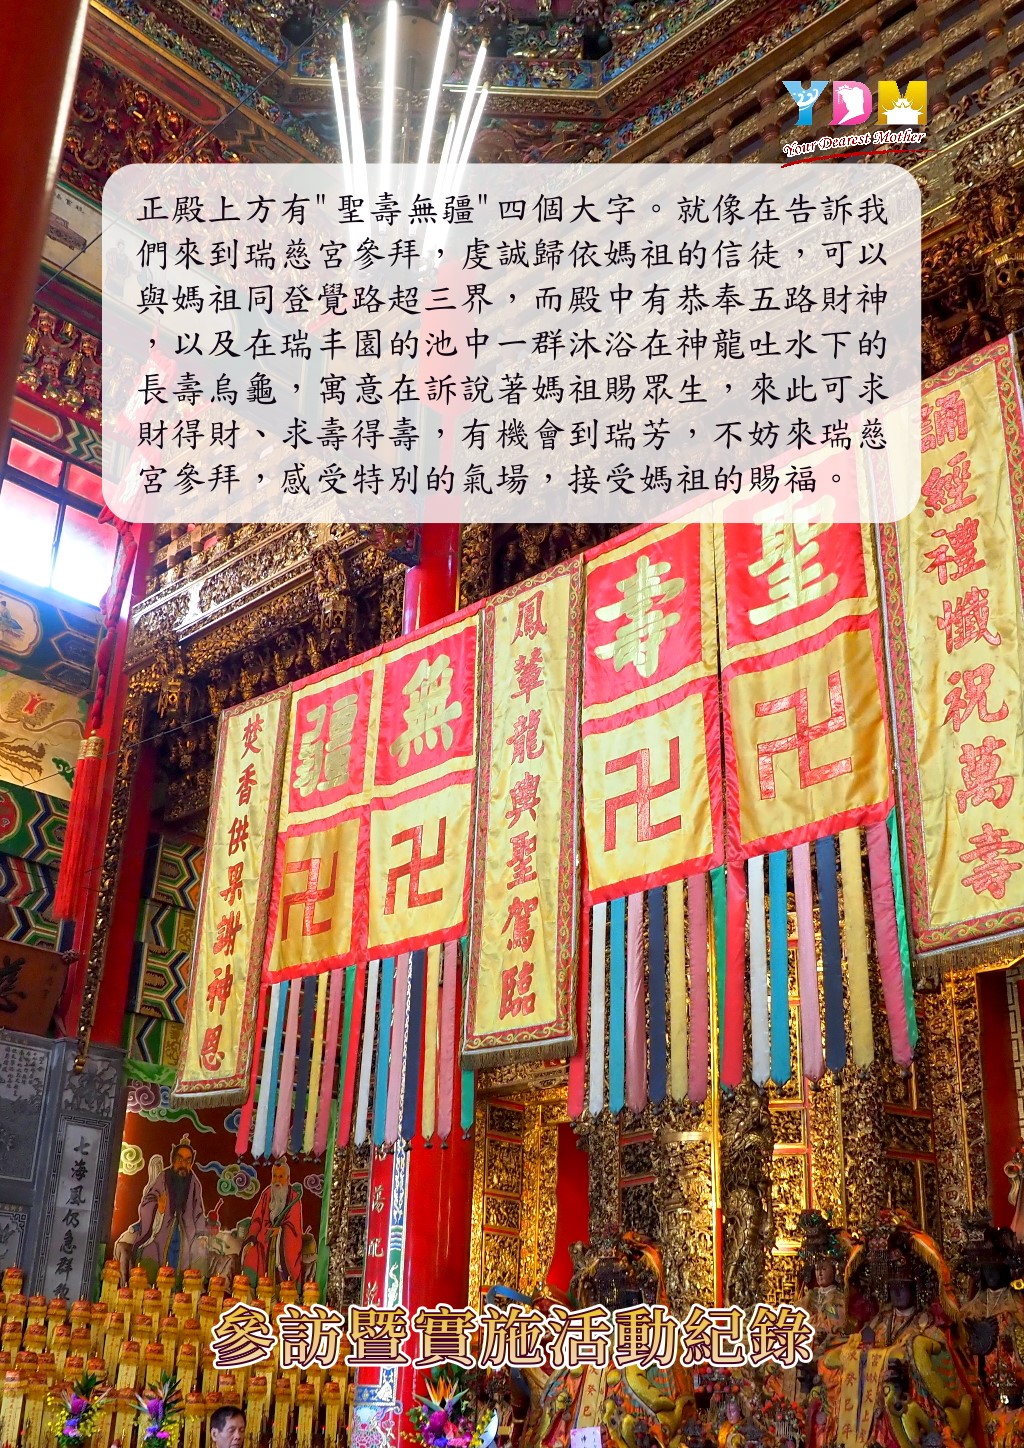 YDM
Your Dearest Mother
正殿上方有"聖壽無疆"四個大字。就像在告訴我
們來到瑞慈宮參拜，虔誠歸依媽祖的信徒，可以
與媽祖同登覺路超三界，而殿中有恭奉五路財神
，以及在瑞丰園的池中一群沐浴在神龍吐水下的
長壽烏龜，寓意在訴說著媽祖賜眾生，來此可求
財得財、求壽得壽，有機會到瑞芳，不妨來瑞慈
宮參拜，感受特別的氣場，接受媽祖的賜福。
誦經禮懺祝萬壽
聖
壽
鳳輦龍輿聖駕臨
無
疆
焚香供果謝神恩
慈
七海風仍急群黎
參訪暨實施活動紀錄